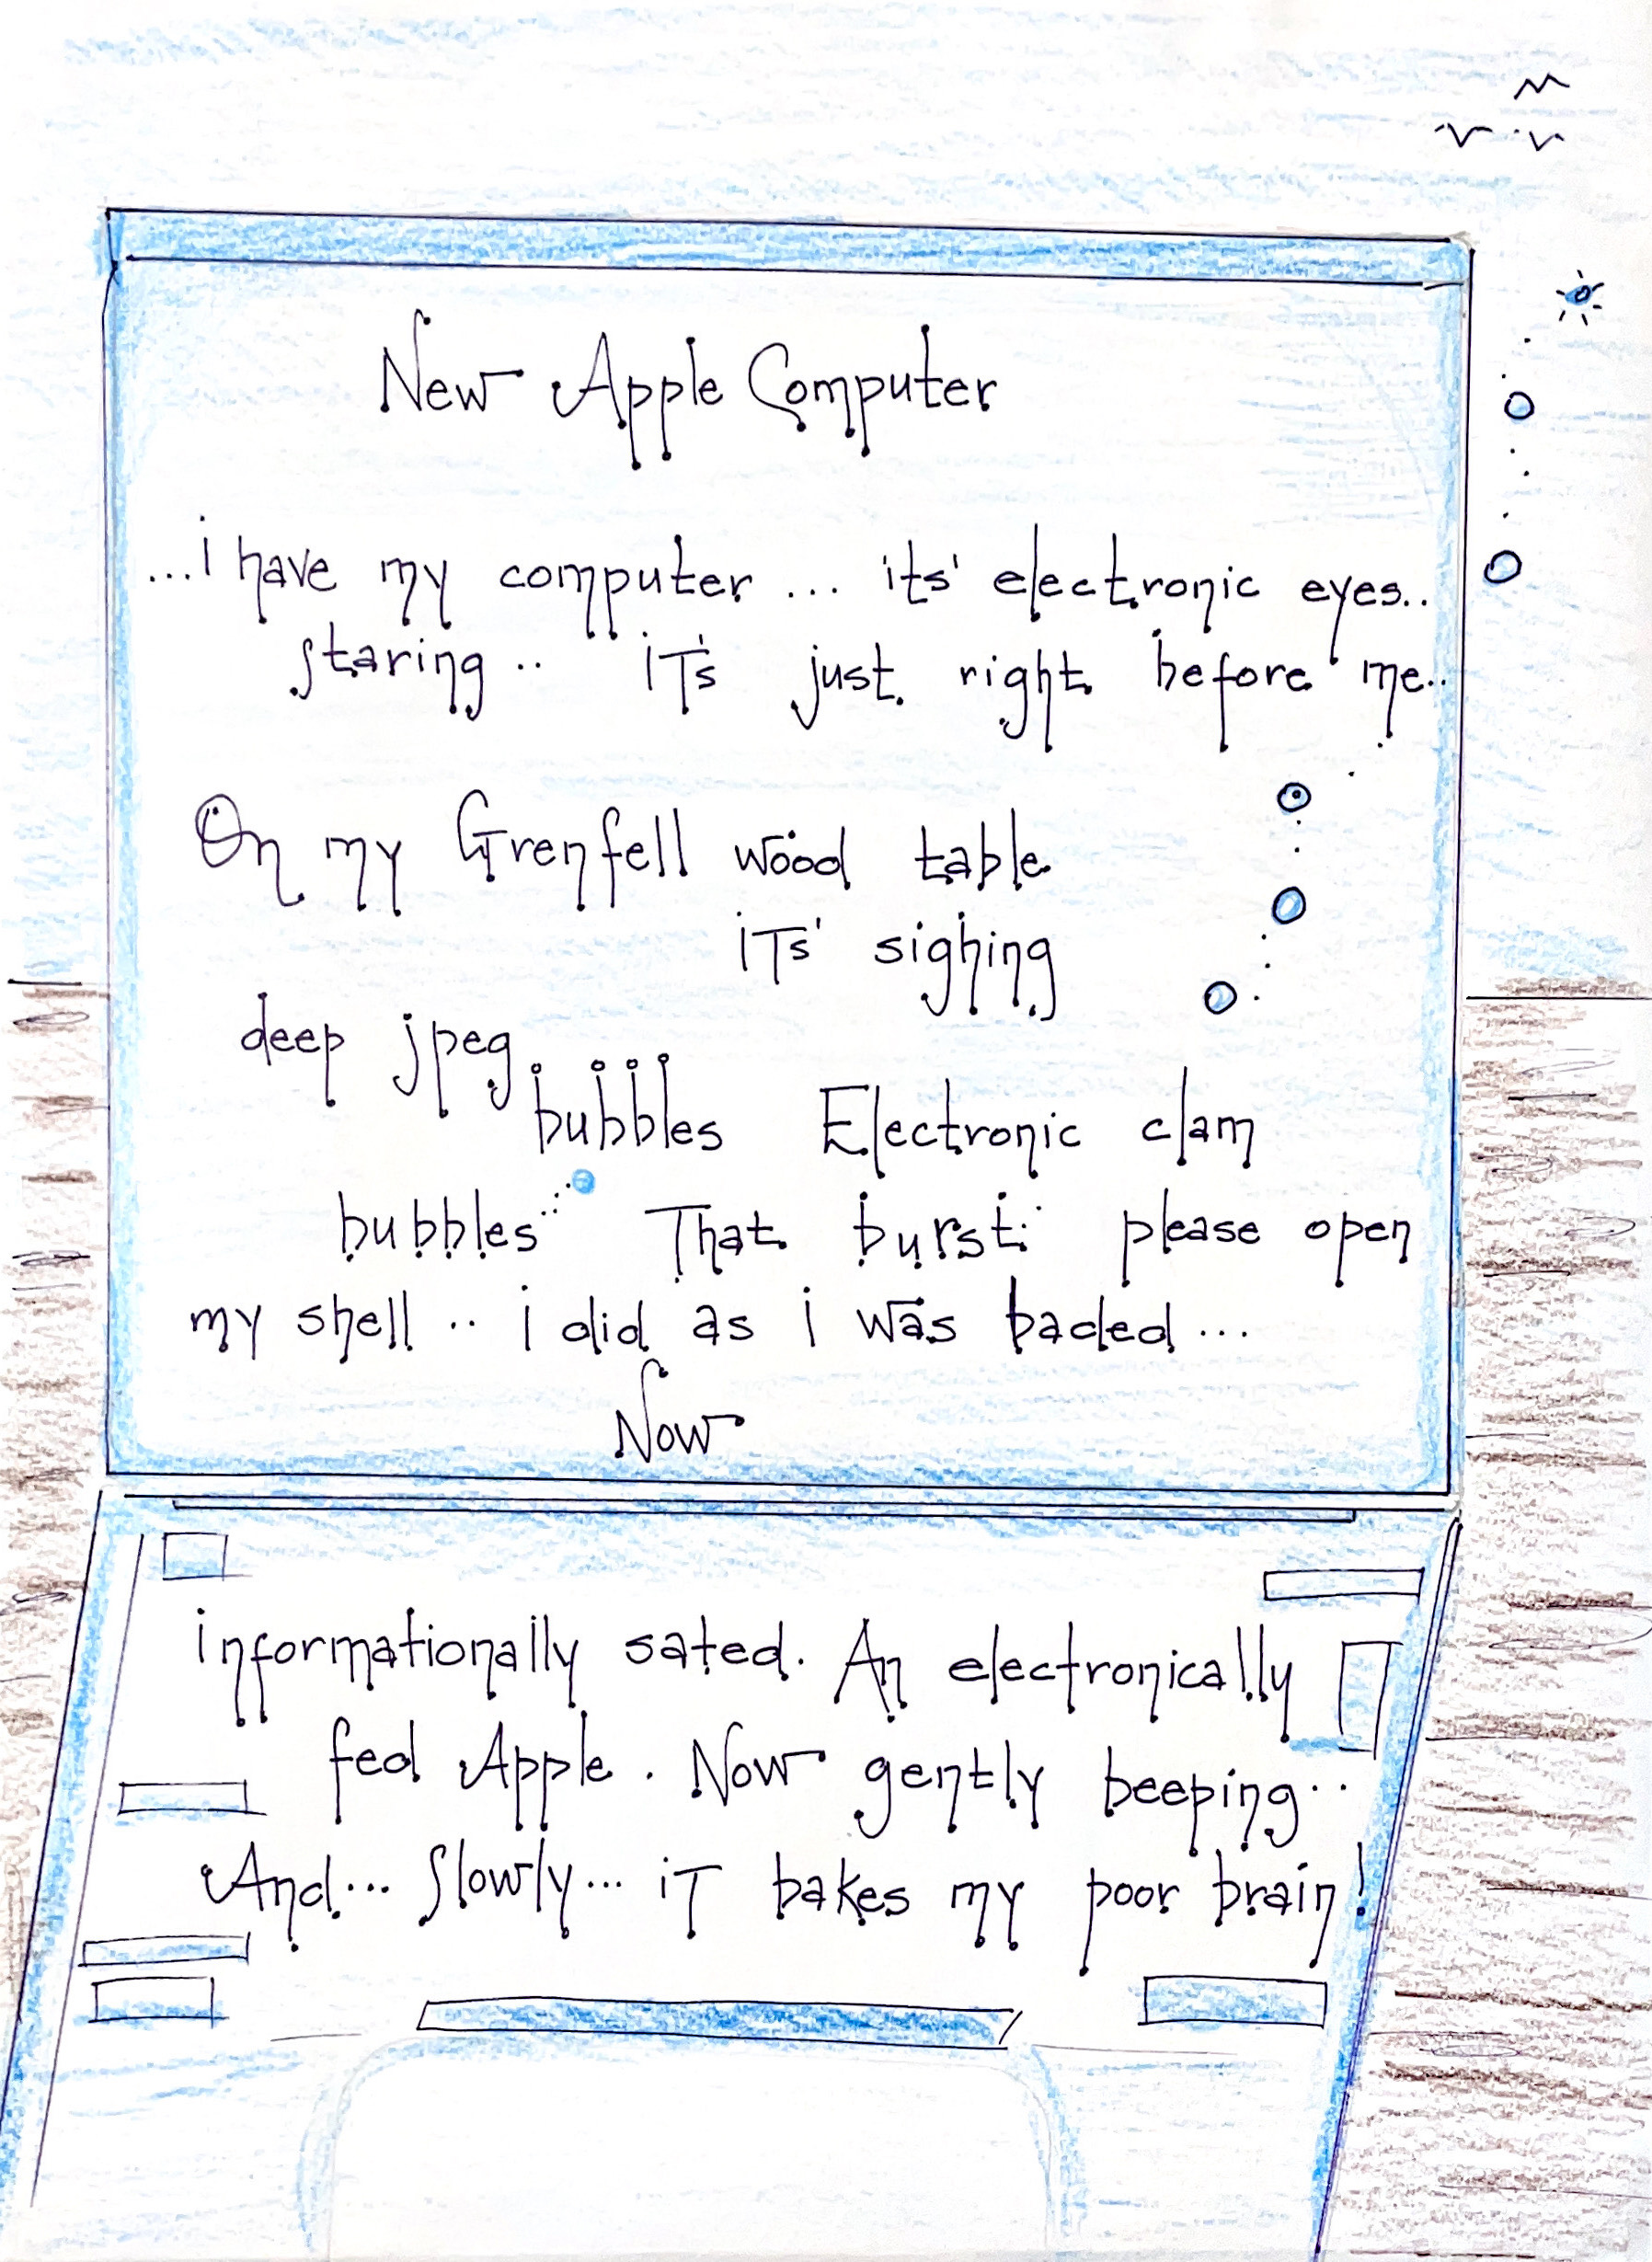 New Apple Computer
...i have my computer ... its' electronic eyes..
staring .. iT's just right before me..
On my Grenfell wood table
iTs' sighing
deep jpeg
bubbles Electronic clam
bubbles.. That burst.. please open
my shell .. i did as i was baded ...
Now
informationally sated. An electronically
fed Apple. Now gently beeping..
And... slowly... iT bakes my poor brain!